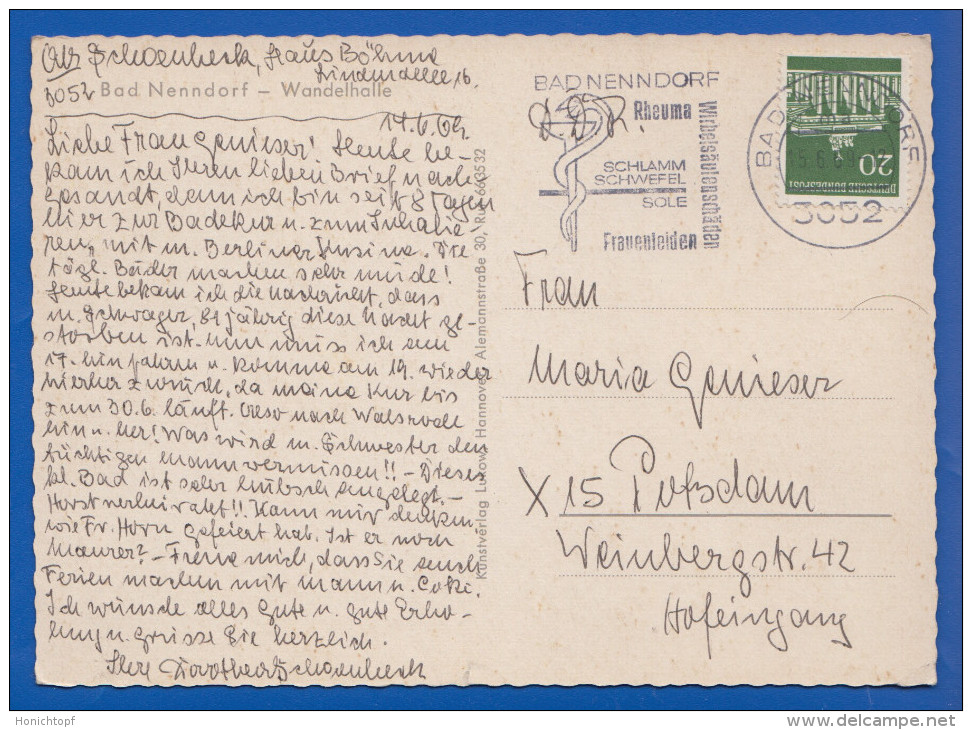 Abs Schoenbeck, Haus Böhme
Lindenallee 16
3052 Bad Nenndorf – Wandelhalle
14.6.69.
Liebe Frau Genieser! Heute be-
kam ich Ihren lieben Brief nach
gesandt, denn ich bin seit 8 Tagen
hier zur Badekur u. zum Inhalie-
ren, mit m. Berliner Kusine. Die
tägl. Bäder machen sehr müde!
Heute bekam ich die Nachricht, dass
m. Schwager, 81 jährig diese Nacht ge-
storben ist. Nun muss ich am
17. hinfahren u. komme am 19. wieder
hierher zurück, da meine Kur bis
zum 30.6. läuft. Also nach Walsrode
hin u. her! Was wird m. Schwester den
tüchtigen Mann vermissen!! – Dieses
kl. Bad ist sehr hübsch angelegt. –
Horst verheiratet!! Kann mir denken
wie Fr. Horn gefeiert hat. Ist er noch
Maurer? – Freue mich, dass Sie auch
Ferien machen mit Mann u. Coki.
Ich wünsche alles Gute u. gute Erho-
lung u. grüsse Sie herzlich.
Ihre Dorothea Schoenbeck
Kunstverlag Lukow, Hannover, Alemannstraße 30, Ruf 666532
BAD NENNDORF
Rheuma
SCHLAMM
SCHWEFEL
SOLE
Frauenleiden
Wirbelsäulenschäden
BAD NENNDORF
15.6.69
3052
20
DEUTSCHE BUNDESPOST
Frau
Maria Genieser
X 15 Potsdam
Weinbergstr. 42
Hofeingang
Honichtopf
www.delcampe.net